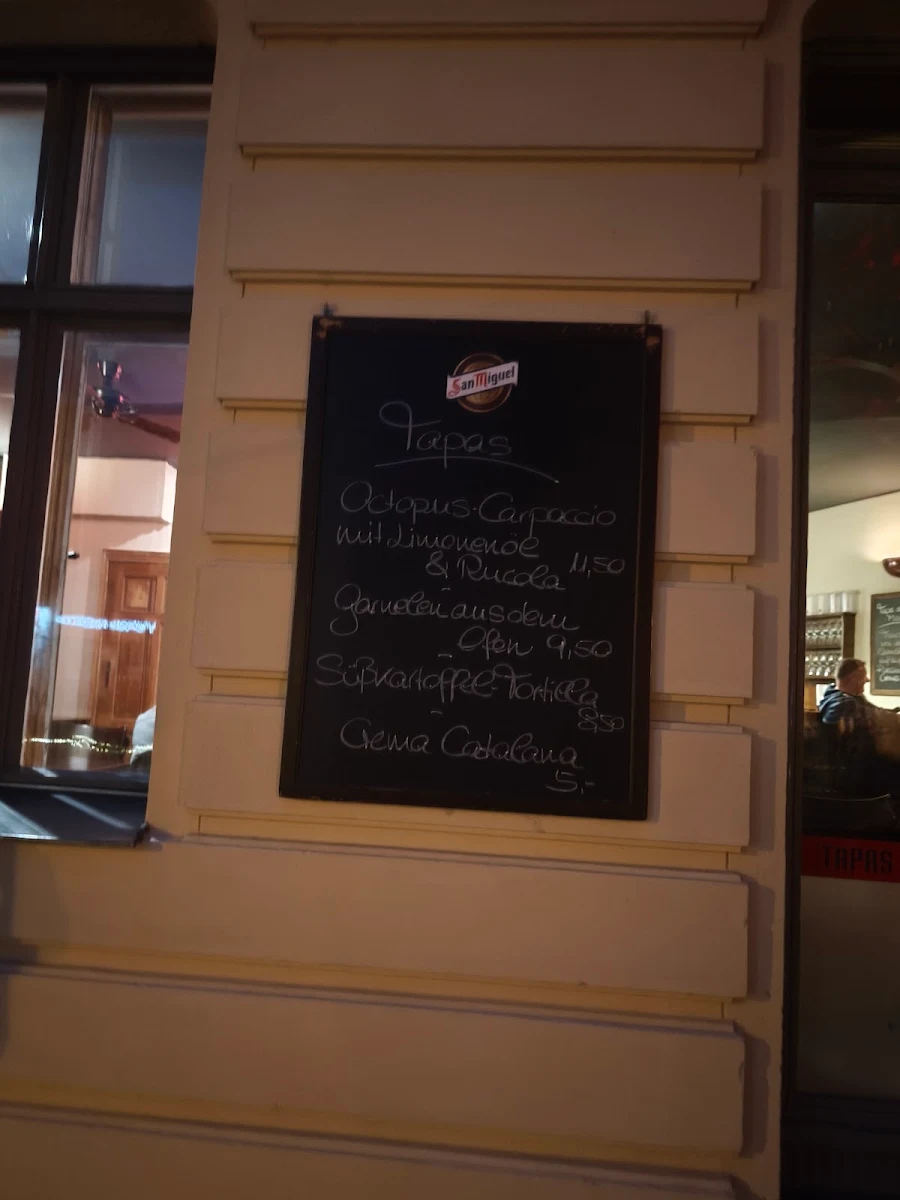 San Miguel
Tapas
Octopus-Carpaccio
mit Limonenöl
& Rucola 11,50
-
Garnelen aus dem
Ofen 9,50
-
Süßkartoffel-Tortilla
8,50
-
Crema Catalana
5,-
TAPAS